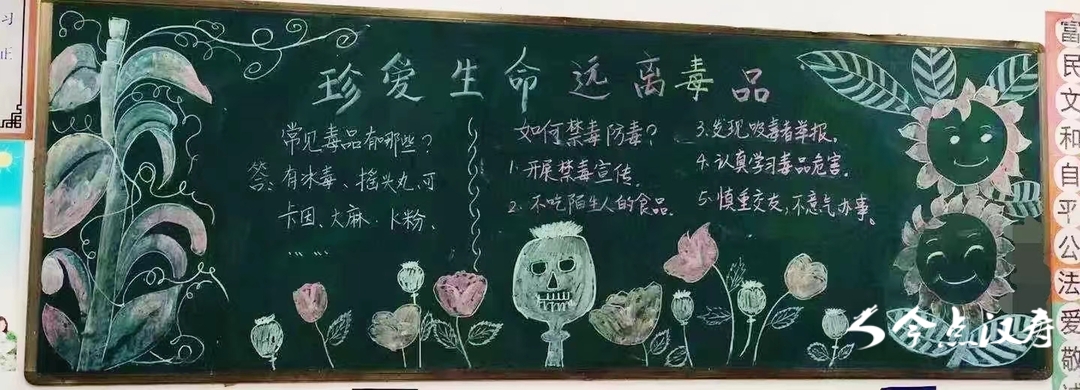 珍爱生命远离毒品
常见毒品有哪些?
答:有冰毒、摇头丸、可
卡因、大麻、K粉、
……
如何禁毒防毒?
1.开展禁毒宣传.
2.不吃陌生人的食品.
3.发现吸毒者举报.
4.认真学习毒品危害.
5.慎重交友,不意气办事.
富
民
文
和
自
平
公
法
爱
敬
习
正
今点汉寿